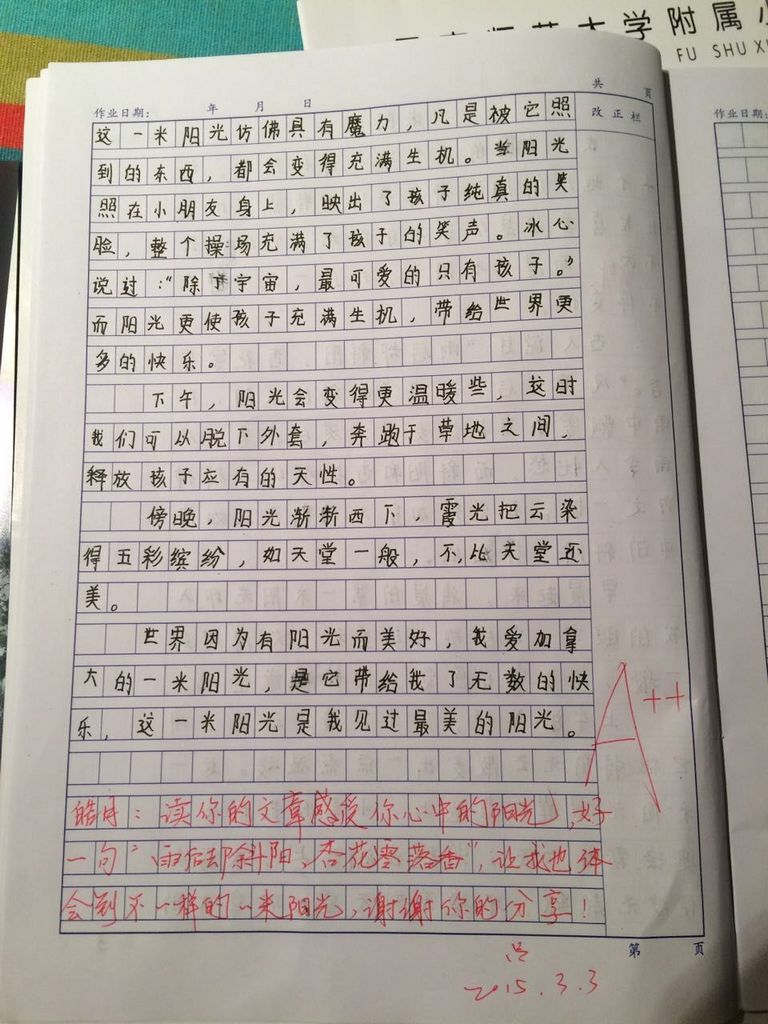 学附属小
FU SHU XI
作业日期： 年 月 日
共 页
改正栏
作业日期：
这一米阳光仿佛具有魔力，凡是被它照
到的东西，都会变得充满生机。当阳光
照在小朋友身上，映出了孩子纯真的笑
脸，整个操场充满了孩子的笑声。冰心
说过：“除了宇宙，最可爱的只有孩子。”
而阳光更使孩子充满生机，带给世界更
多的快乐。
下午，阳光会变得更温暖些，这时
我们可以脱下外套，奔跑于草地之间，
释放孩子应有的天性。
傍晚，阳光渐渐西下，霞光把云染
得五彩缤纷，如天堂一般，不，比天堂还
美。
世界因为有阳光而美好，我爱加拿
大的一米阳光，是它带给我了无数的快
乐，这一米阳光是我见过最美的阳光。
A++
皓月：读你的文章感受你心中的阳光，好
一句“雨后却斜阳，杏花零落香”，让我也体
会到不一样的一米阳光，谢谢你的分享！
吕
2015.3.3
第 页